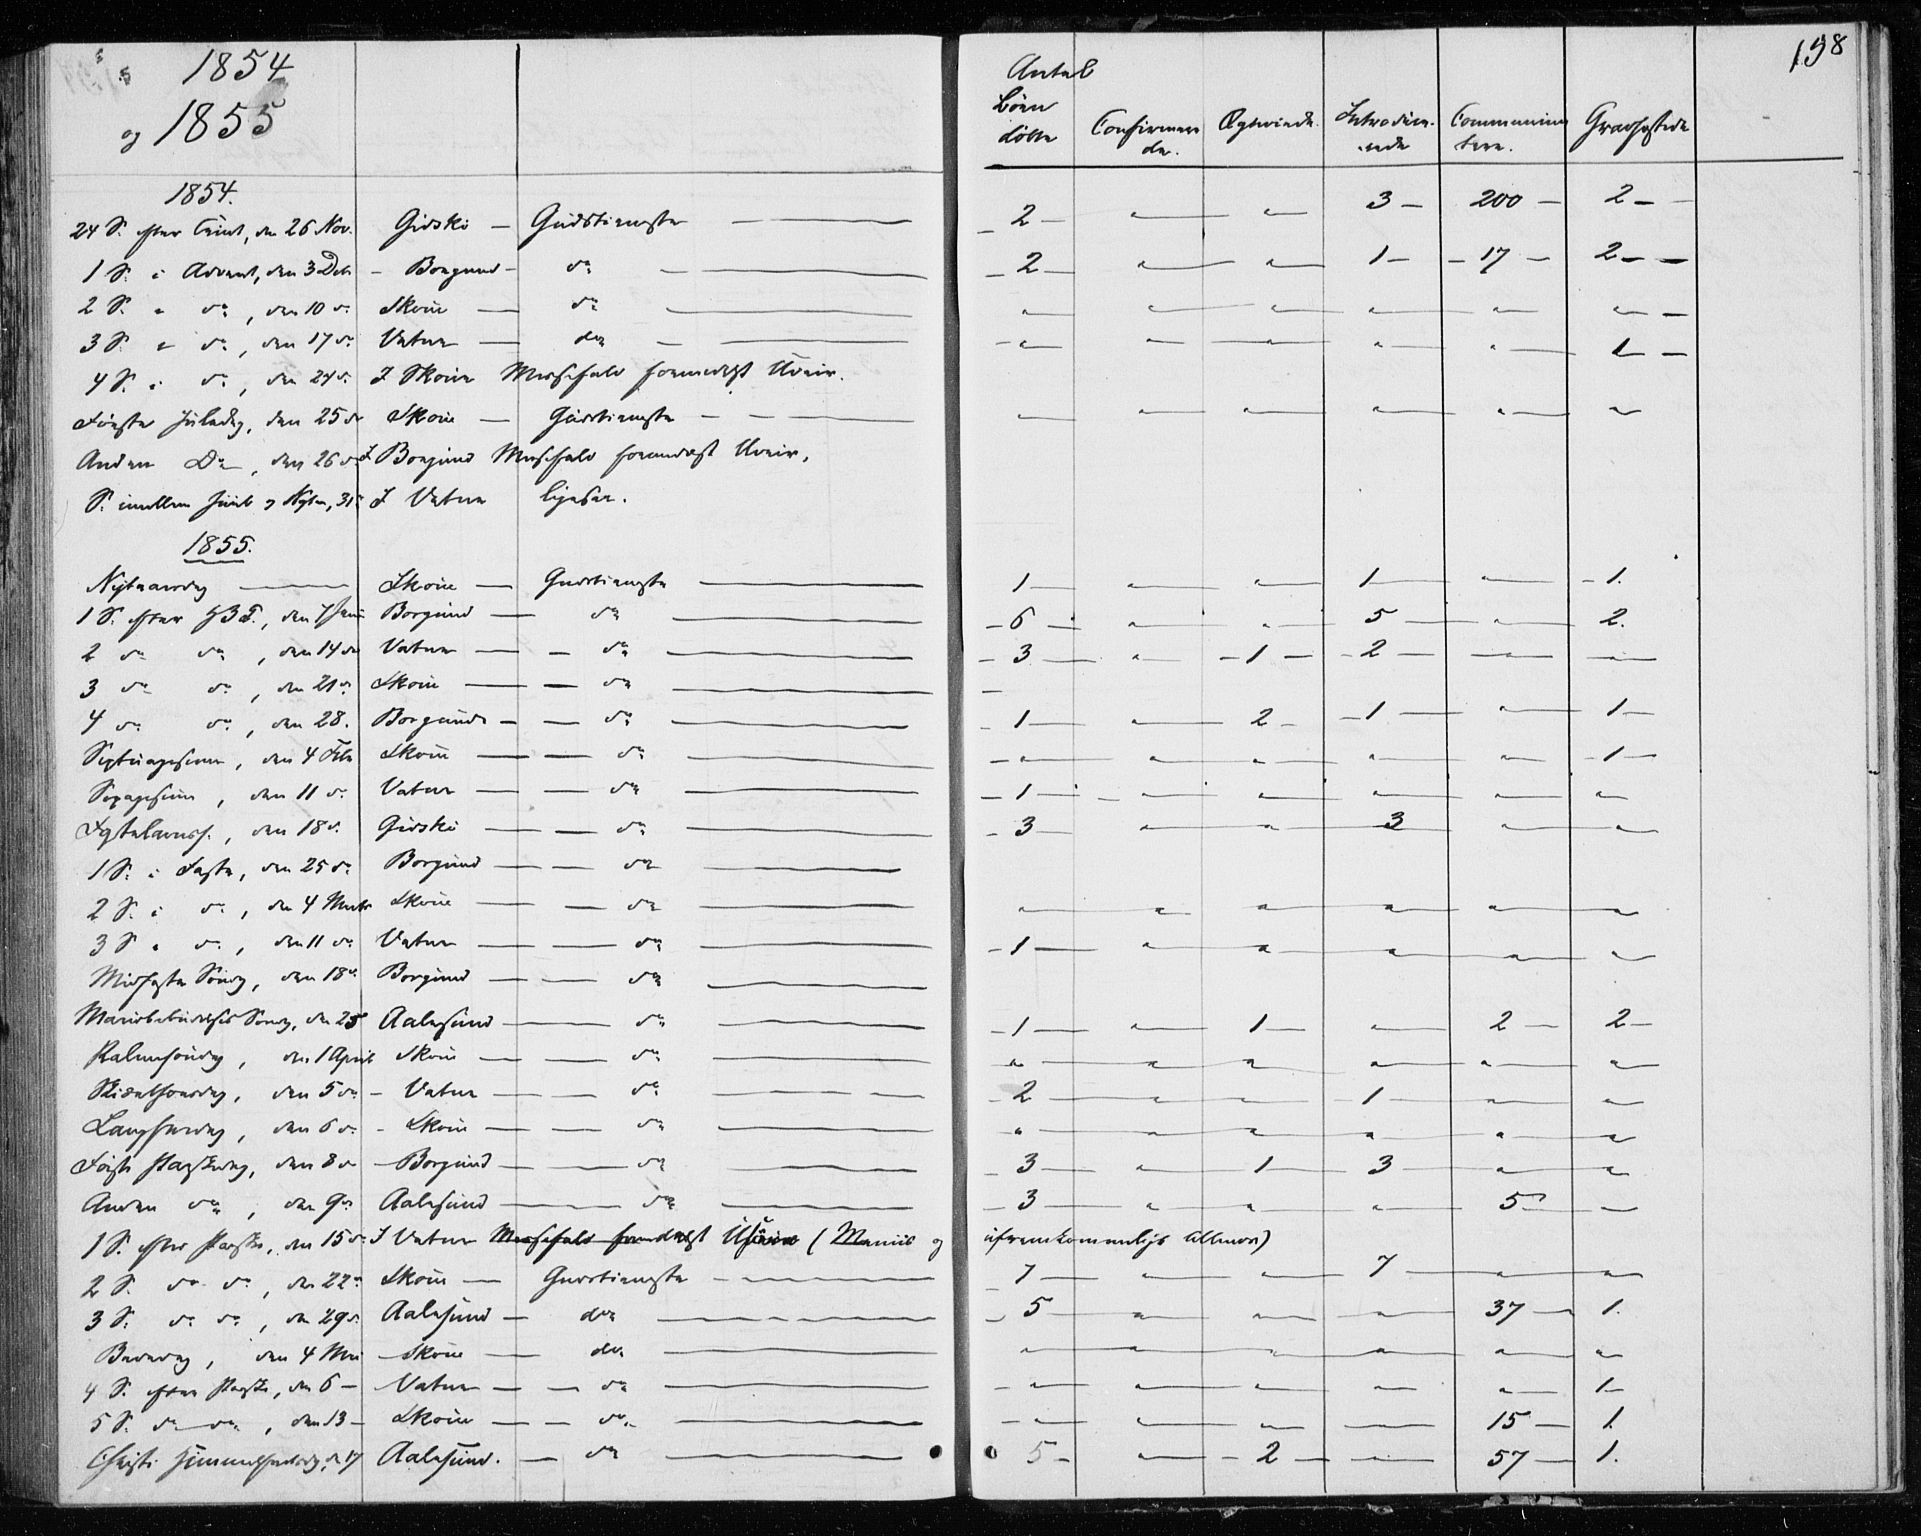 198
1854
og 1855
Antal Børn døbte | Confirmerende. | Ægteviede. | Introducerende | Communicantere. | Gravfæstede
1854.
24 S. efter Trinit, den 26 Nov. Gidske — Gudstieneste — 2 — " — " — 3 — 200 — 2 —
1 S. i Advent, den 3 Decb — Borgund — do — 2 — " — " — 1 — 17 — 2 —
2 S. " do, den 10 do Skoue — do — " — " — " — " — " — "
3 S. " do, den 17 do Vatne — do — " — " — " — " — " — 1 —
4 S. i do, den 24 do I Skoue Messefald formedelst Uveir.
Første Juledag, den 25 do Skoue — Gudstieneste — " — " — " — " — " — "
Anden Do, den 26 do I Borgund Messefald formedelst Uveir.
S. imellem Juul og Nytaar, 31 I Vatne ligesaa.
1855.
Nytaarsdag — Skoue — Gudstieneste — 1 — " — " — 1 — " — 1.
1 S. efter H3K., den 7 Janu Borgund — do — 6 — " — " — 5 — " — 2.
2 do do, den 14 do Vatne — do — 3 — " — 1 — 2 — " — "
3 do do, den 21 do Skoue — do —
4 do do, den 28. Borgund — do — 1 — " — 2 — 1 — " — 1 —
Septuagesima, den 4 Febr Skoue — do — " — " — " — " — " — 1 —
Sexagesima, den 11 do. Vatne — do — 1 — " — " — " — " — "
Fastelavnss., den 18 do. Gidske — do — 3 — " — " — 3 — " — "
1 S. i Faste, den 25 do. Borgund — do —
2 S. i do, den 4 Marts Skoue — do — " — " — " — " — " — "
3 S. " do, den 11 do Vatne — do — 1 — " — " — " — " — "
Midfaste Søndag, den 18 do. Borgund — do —
Mariæbebudelses Søndag, den 25 Aalesund — do — 1 — " — 1 — " — 2 — 2 —
Palmesøndag, den 1 April Skoue — do — " — " — " — " — " — "
Skiærthorsdag, den 5 do — Vatne — do — 2 — " — " — 1 — " — "
Langfredag, den 6 do. — Skoue — do — " — " — " — " — " — "
Første Paaskedag, den 8 do — Borgund — do — 3 — " — 1 — 3 — " — "
Anden do, den 9 do. Aalesund — do — 3 — " — " — " — 5 — "
1 S. efter Paaske, den 15 do I Vatne Messefald formedelst ( og ufremkommelige Allmue)
2 S. do do, den 22 do Skoue — Gudstieneste — 7 — " — " — 7 — " — "
3 S. do do, den 29 do. Aalesund — do — 5 — " — " — " — 37 — 1.
Bededag, den 4 Mai — Skoue — do — " — " — " — " — " — "
4 S. efter Paaske, den 6 — Vatne — do — " — " — " — " — " — 1 —
5 S. do do, den 13 — Skoue — do — " — " — " — — 15 — 1.
Christi Himmelfartsdag, d. 17 Aalesund. — do — 5 — " — 2 — " — 57 — 1.